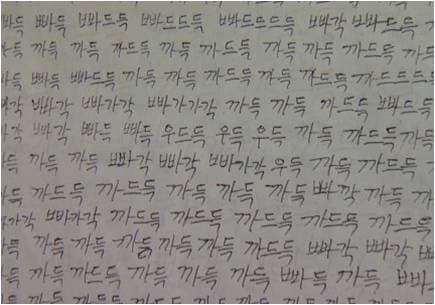 빠득 빠득 빠드득 빠드드득 빠드드드득 빠각 빠드득
까득 까득 까드득 까득 까드득 까득 까득 까드득 까득
빠득 빠드득 까득 까득 까득 까득 까드득 까드드드득
빠각 빠가각 빠가가각 까득 까득 까드득 빠드득
빠각 빠득 빠득 우드득 우득 우득 까득 까드득 까득
까득 까득 빠각 빠각 빠가각 우득 까득 까드득
까득 까드득 까득 까드득 까드득 빠각 까득 까득
빠가각 까드득 까드득 까드득 까드득 까드득
까득 까득 까득 까득 까드득 빠각 빠각
까득 까드득 까득 까득 까득 빠득 까득